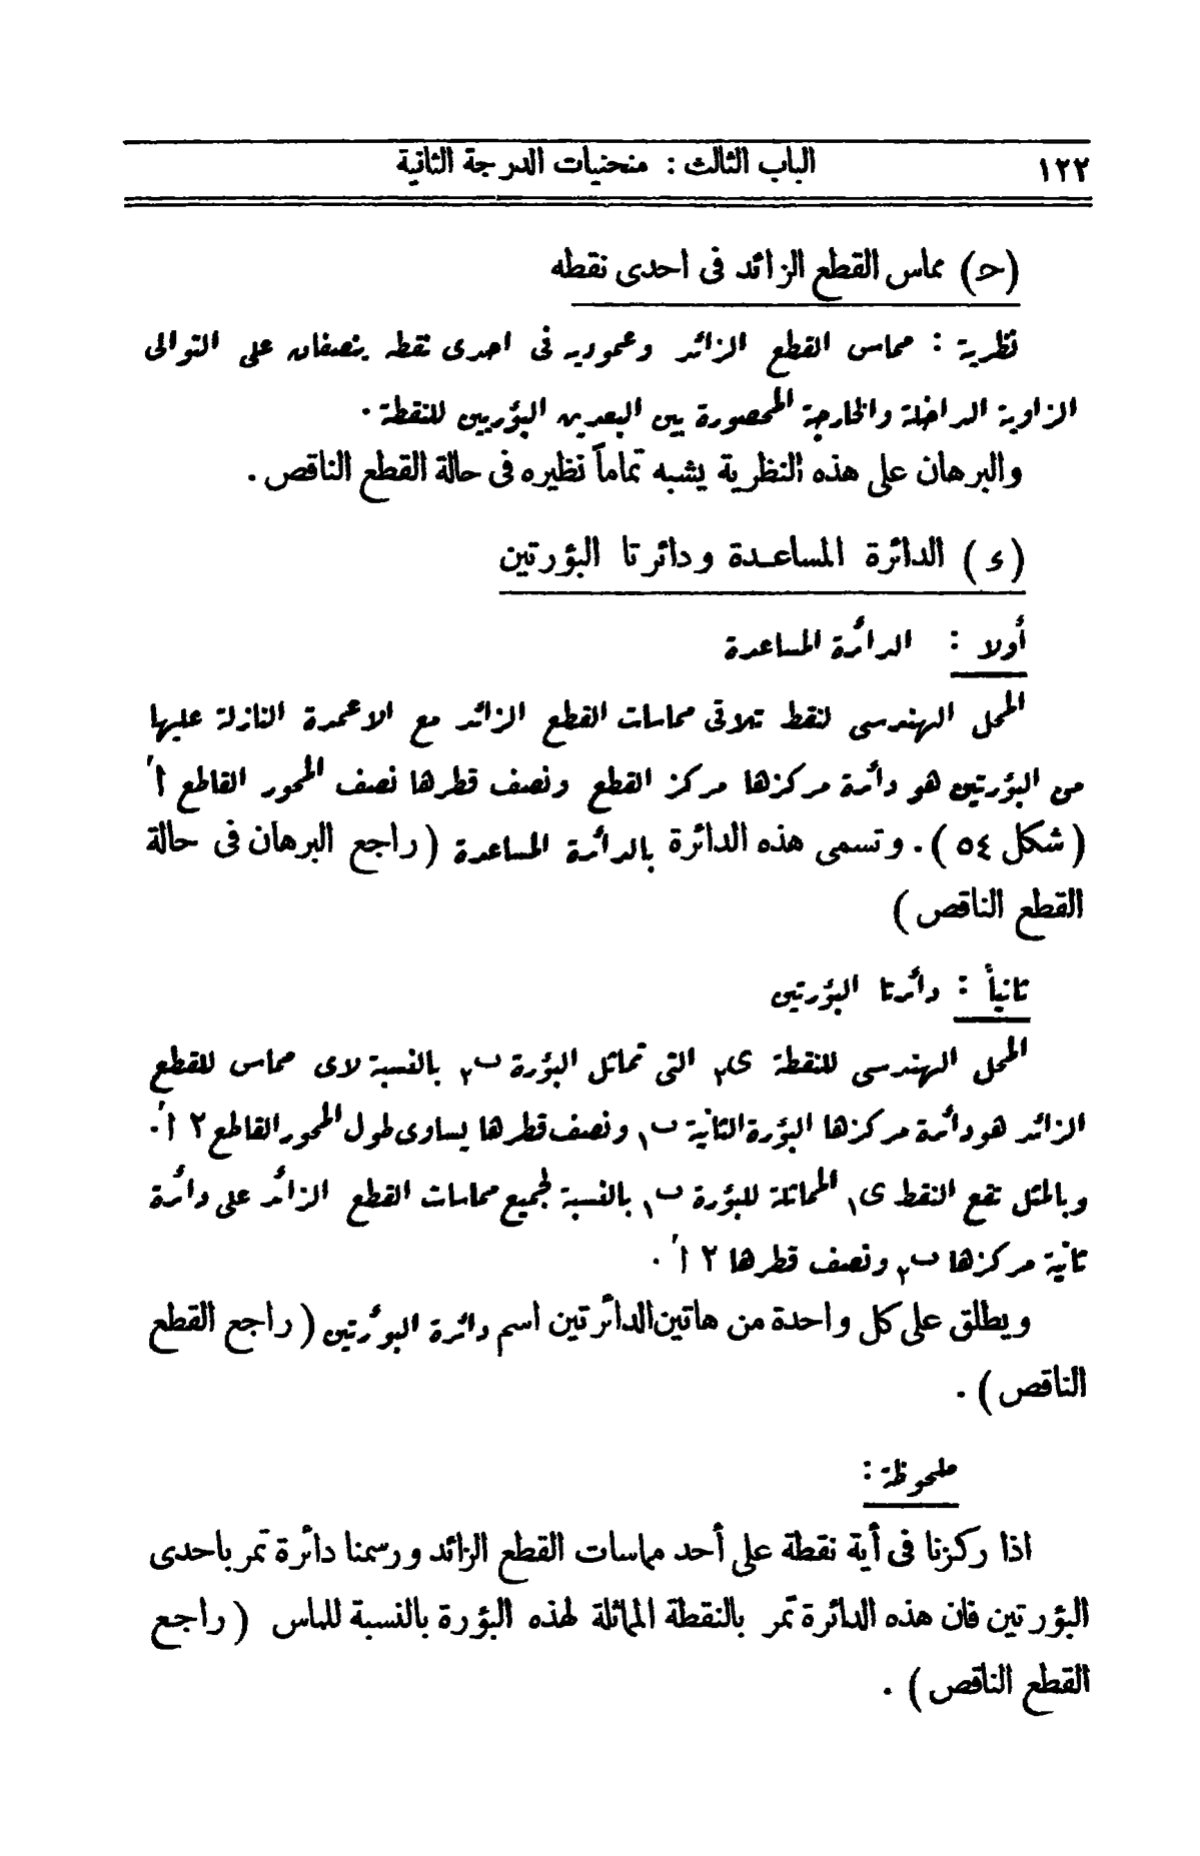 ١٢٢ الباب الثالث : منحنيات الدرجة الثانية
(حـ) مماس القطع الزائد فى احدى نقطه
نظرية : مماس القطع الزائد وعموديه فى احدى نقطه ينصفان على التوالى
الزاوية الداخلة والخارجة المحصورة بين البعدين البؤريين للنقطة .
والبرهان على هذه النظرية يشبه تماماً نظيره فى حالة القطع الناقص .
(ء) الدائرة المساعدة ودائرتا البؤرتين
أولا : الدائرة المساعدة
المحل الهندسى لنقط تلاقى مماسات القطع الزائد مع الاعمدة النازلة عليها
من البؤرتين هو دائرة مركزها مركز القطع ونصف قطرها نصف المحور القاطع أ َ
( شكل ٥٤ ) . وتسمى هذه الدائرة بالدائرة المساعدة ( راجع البرهان فى حالة
القطع الناقص )
ثانيأ : دائرتا البؤرتين
المحل الهندسى للنقطة ى٢ التى تماثل البؤرة ب٢ بالنسبة لاى مماس للقطع
الزائد هو دائرة مركزها البؤرة الثانية ب١ ونصف قطرها يساوى طول المحور القاطع ٢ أ َ .
وبالمثل تقع النقط ى١ المماثلة للبؤرة ب١ بالنسبة لجميع مماسات القطع الزائد على دائرة
ثانية مركزها ب٢ ونصف قطرها ٢ أ َ .
ويطلق على كل واحدة من هاتين الدائرتين اسم دائرة البؤرتين ( راجع القطع
الناقص ) .
ملحوظة :
اذا ركزنا فى أية نقطة على أحد مماسات القطع الزائد ورسمنا دائرة تمر باحدى
البؤرتين فان هذه الدائرة تمر بالنقطة المماثلة لهذه البؤرة بالنسبة للمماس ( راجع
القطع الناقص ) .